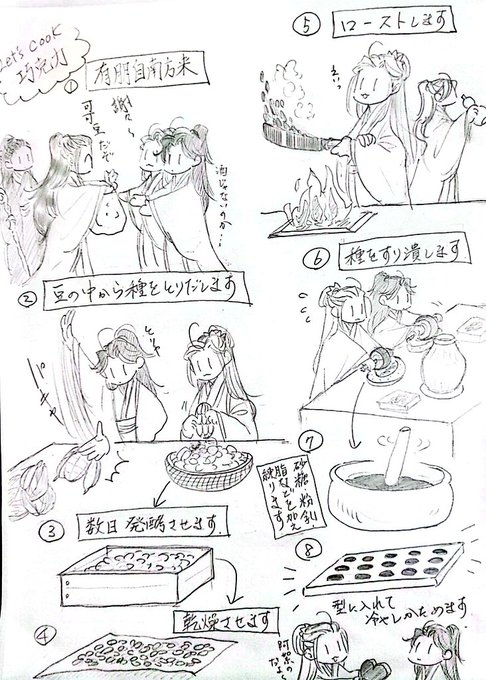 Let's cook
巧克力
① 有朋自南方来
可可豆だぞ
酒じゃないのか…
② 豆の中から種をとりだします
とりゃ
バキャ
③ 数日発酵させます
乾燥させます
④
⑤ ローストします
⑥ 種をすり潰します
⑦ 砂糖、粉乳
脂などを加え
練ります
⑧
型に入れて
冷やしかためます